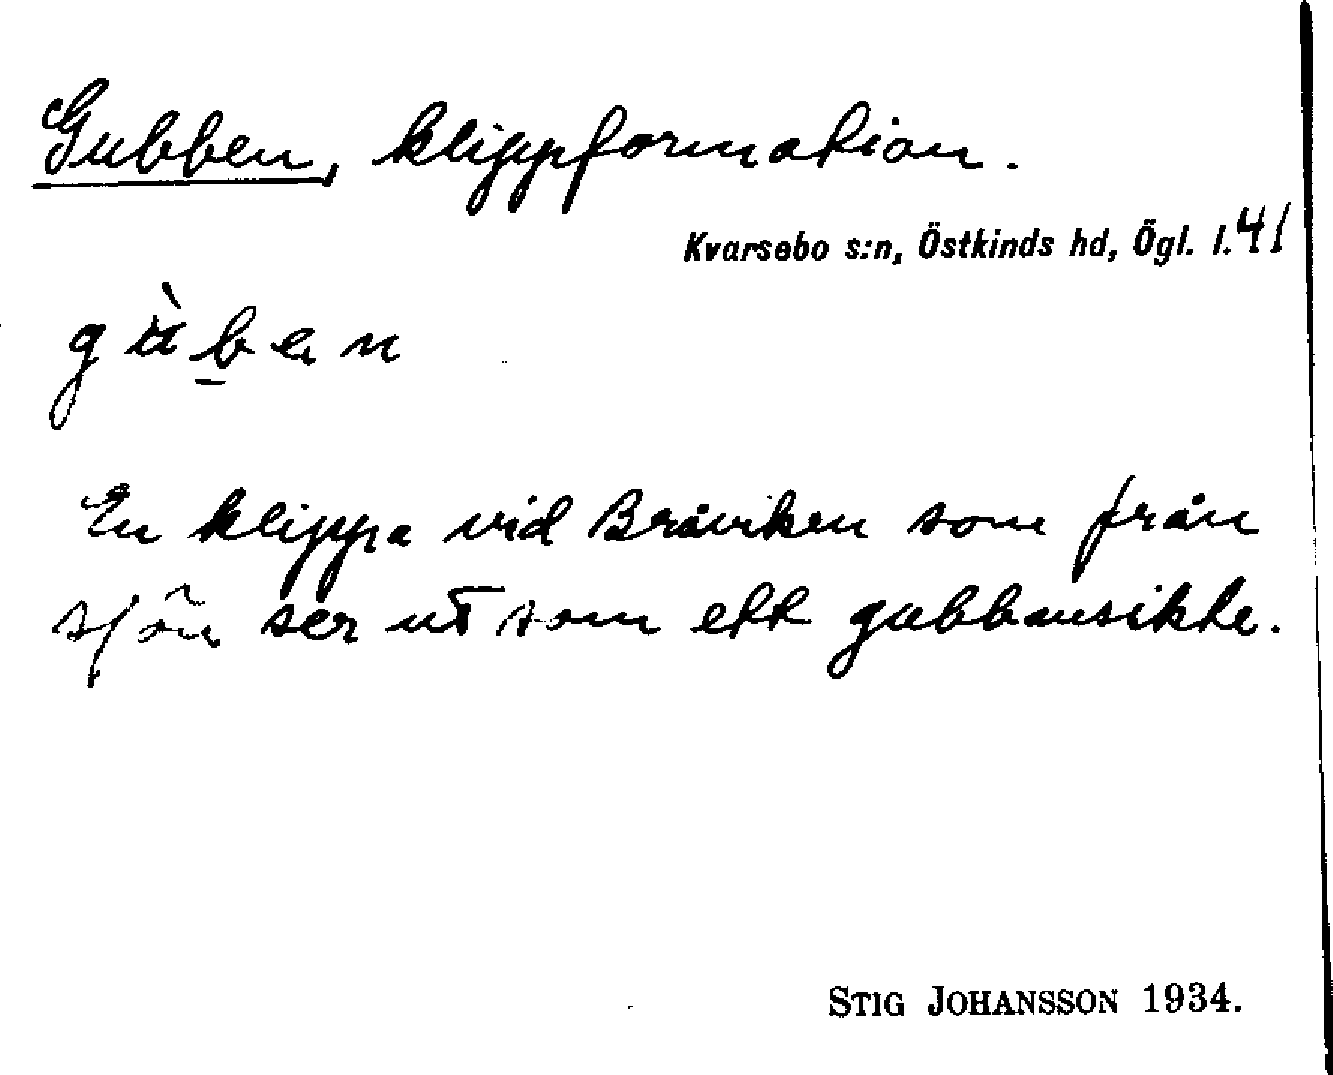 Gubben, klippformation.
Kvarsebo s:n, Östkinds hd, Ögl. l. 41
gùb̲en
En klippa vid Bråviken som från
sjön ser ut som ett gubbansikte.
STIG JOHANSSON 1934.